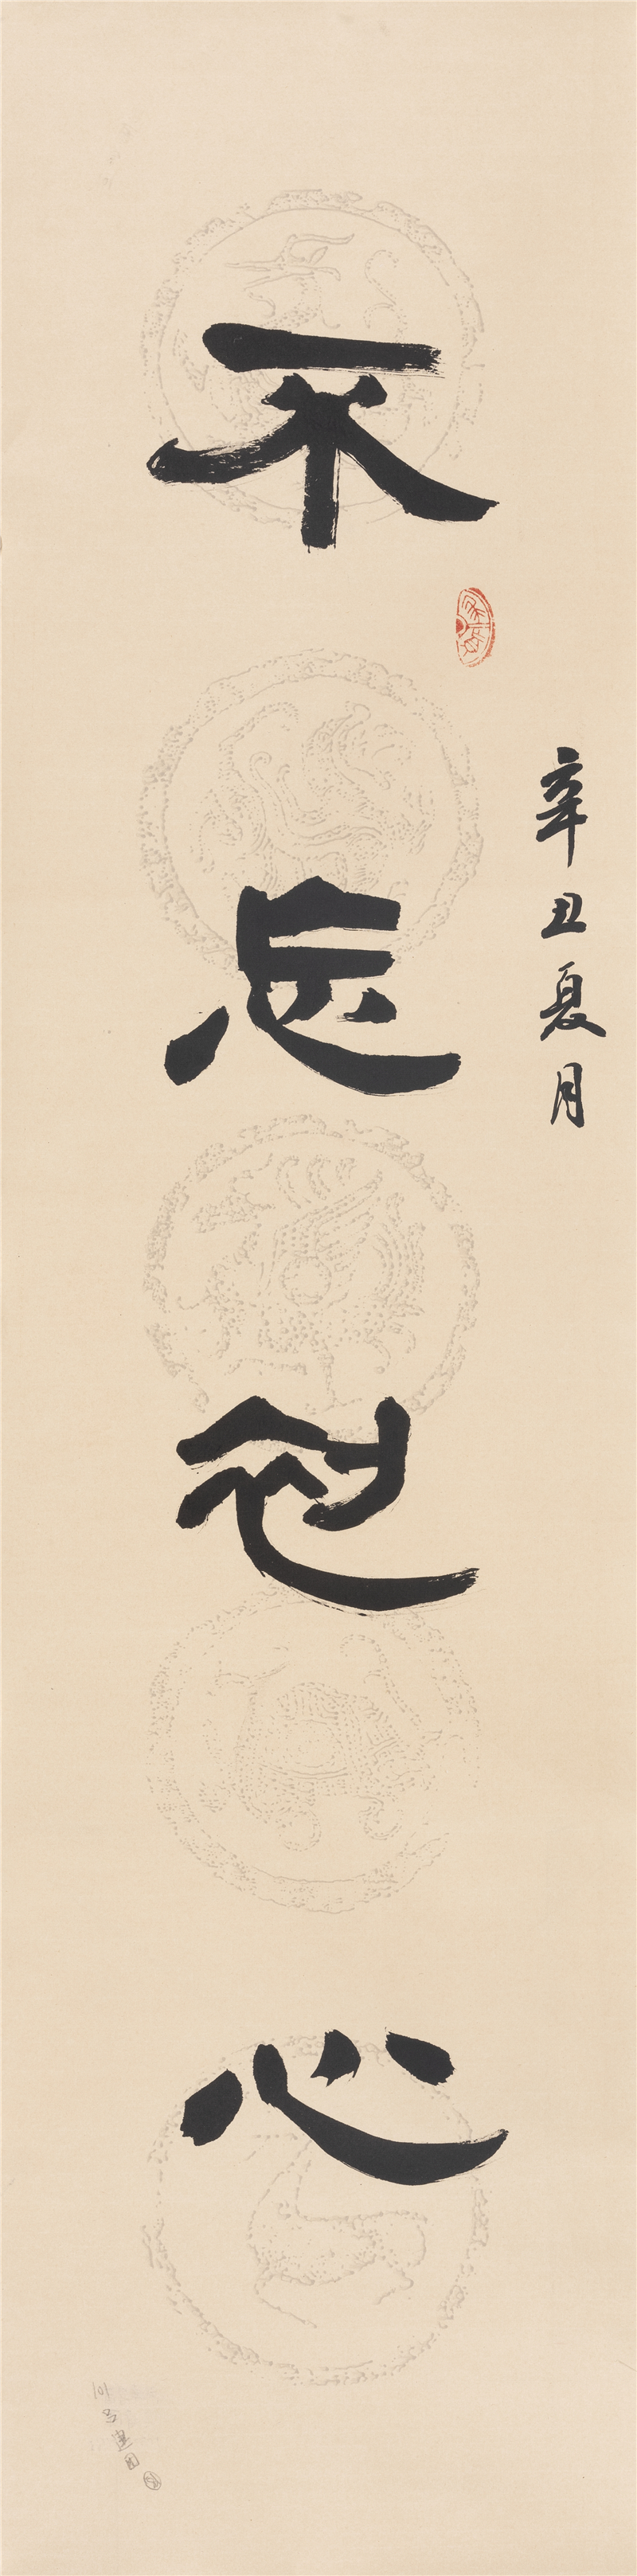 辛丑夏月
不忘初心